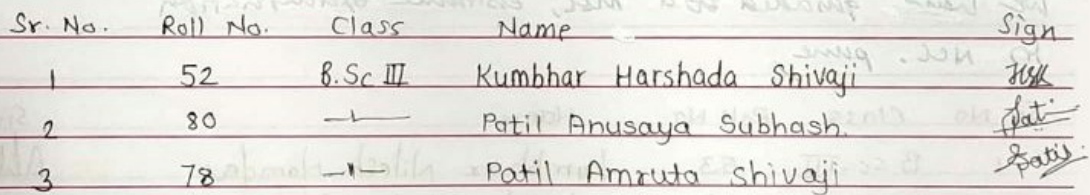 Sr. No. Roll No. Class Name Sign
1 52 B.Sc III Kumbhar Harshada Shivaji HSK
2 80 —"— Patil Anusaya Subhash.
3 78 —"— Patil Amruta Shivaji